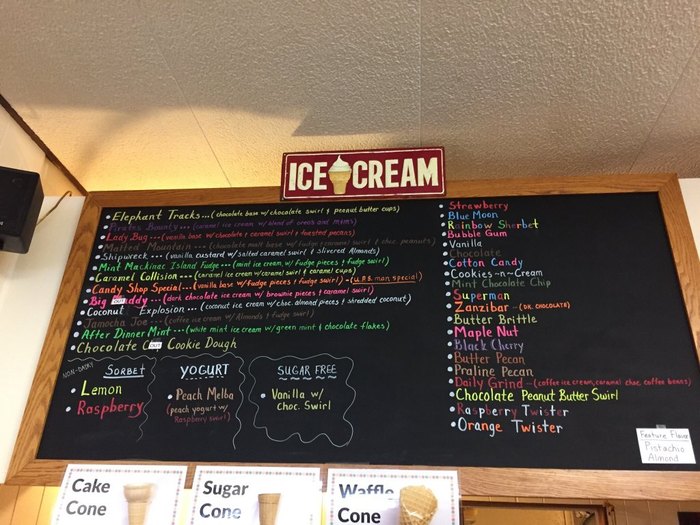 ICE CREAM
Elephant Tracks... (chocolate base w/ chocolate swirl & peanut butter cups)
Pirates Bounty... (caramel ice cream w/ blend of oreos and m&ms)
Lady Bug... (vanilla base w/ chocolate & caramel swirl & toasted pecans)
Matted Mountain... (chocolate malt base w/ fudge & caramel swirl & choc. pecans)
Shipwreck... (vanilla custard w/ salted caramel swirl & slivered Almonds)
Mint Mackinac Island Fudge... (mint ice cream w/ Fudge pieces & fudge swirl)
Caramel Collision... (caramel ice cream w/ caramel swirl & caramel cups)
Candy Shop Special... (vanilla base w/ fudge pieces & fudge swirl) - (U.P.S. man special)
Big OUT addy ... (dark chocolate ice cream w/ brownie pieces & caramel swirl)
Coconut Explosion... (coconut ice cream w/ choc. almond pieces & shredded coconut)
Jamocha Joe... (coffee ice cream w/ Almonds & fudge swirl)
After Dinner Mint... (white mint ice cream w/ green mint & chocolate flakes)
Chocolate C OUT Cookie Dough
NON-DAIRY SORBET
Lemon
Raspberry
YOGURT
Peach Melba
(peach yogurt w/
Raspberry swirl)
SUGAR FREE
Vanilla w/
Choc. Swirl
Strawberry
Blue Moon
Rainbow Sherbet
Bubble Gum
Vanilla
Chocolate
Cotton Candy
Cookies-n-Cream
Mint Chocolate Chip
Superman
Zanzibar - (DK. CHOCOLATE)
Butter Brittle
Maple Nut
Black Cherry
Butter Pecan
Praline Pecan
Daily Grind - (coffee ice cream, caramel choc. coffee beans)
Chocolate Peanut Butter Swirl
Raspberry Twister
Orange Twister
Feature Flavor
Pistachio
Almond
Cake
Cone
Sugar
Cone
Waffle
Cone